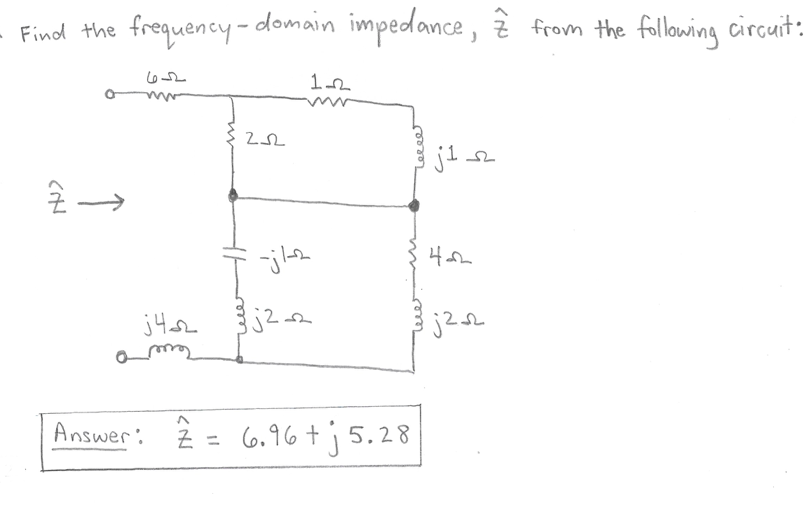 Find the frequency-domain impedance, Ẑ from the following circuit:
6Ω
1Ω
2Ω
j1 Ω
Ẑ →
-j1Ω
4Ω
j4Ω
j2 Ω
j2Ω
Answer: Ẑ = 6.96 + j 5.28